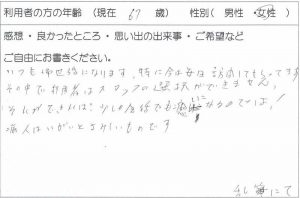 利用者の方の年齢（現在 67 歳） 性別（男性・女性）
感想・良かったところ・思い出の出来事・ご希望など
ご自由にお書きください。
いつも御世話になります。特に今は母は訪問してもらってます
その中で利用者はスタッフの選択ができません。
それができれば、少しの会話でも
病人はいがいとさみしいものです
乱筆にて